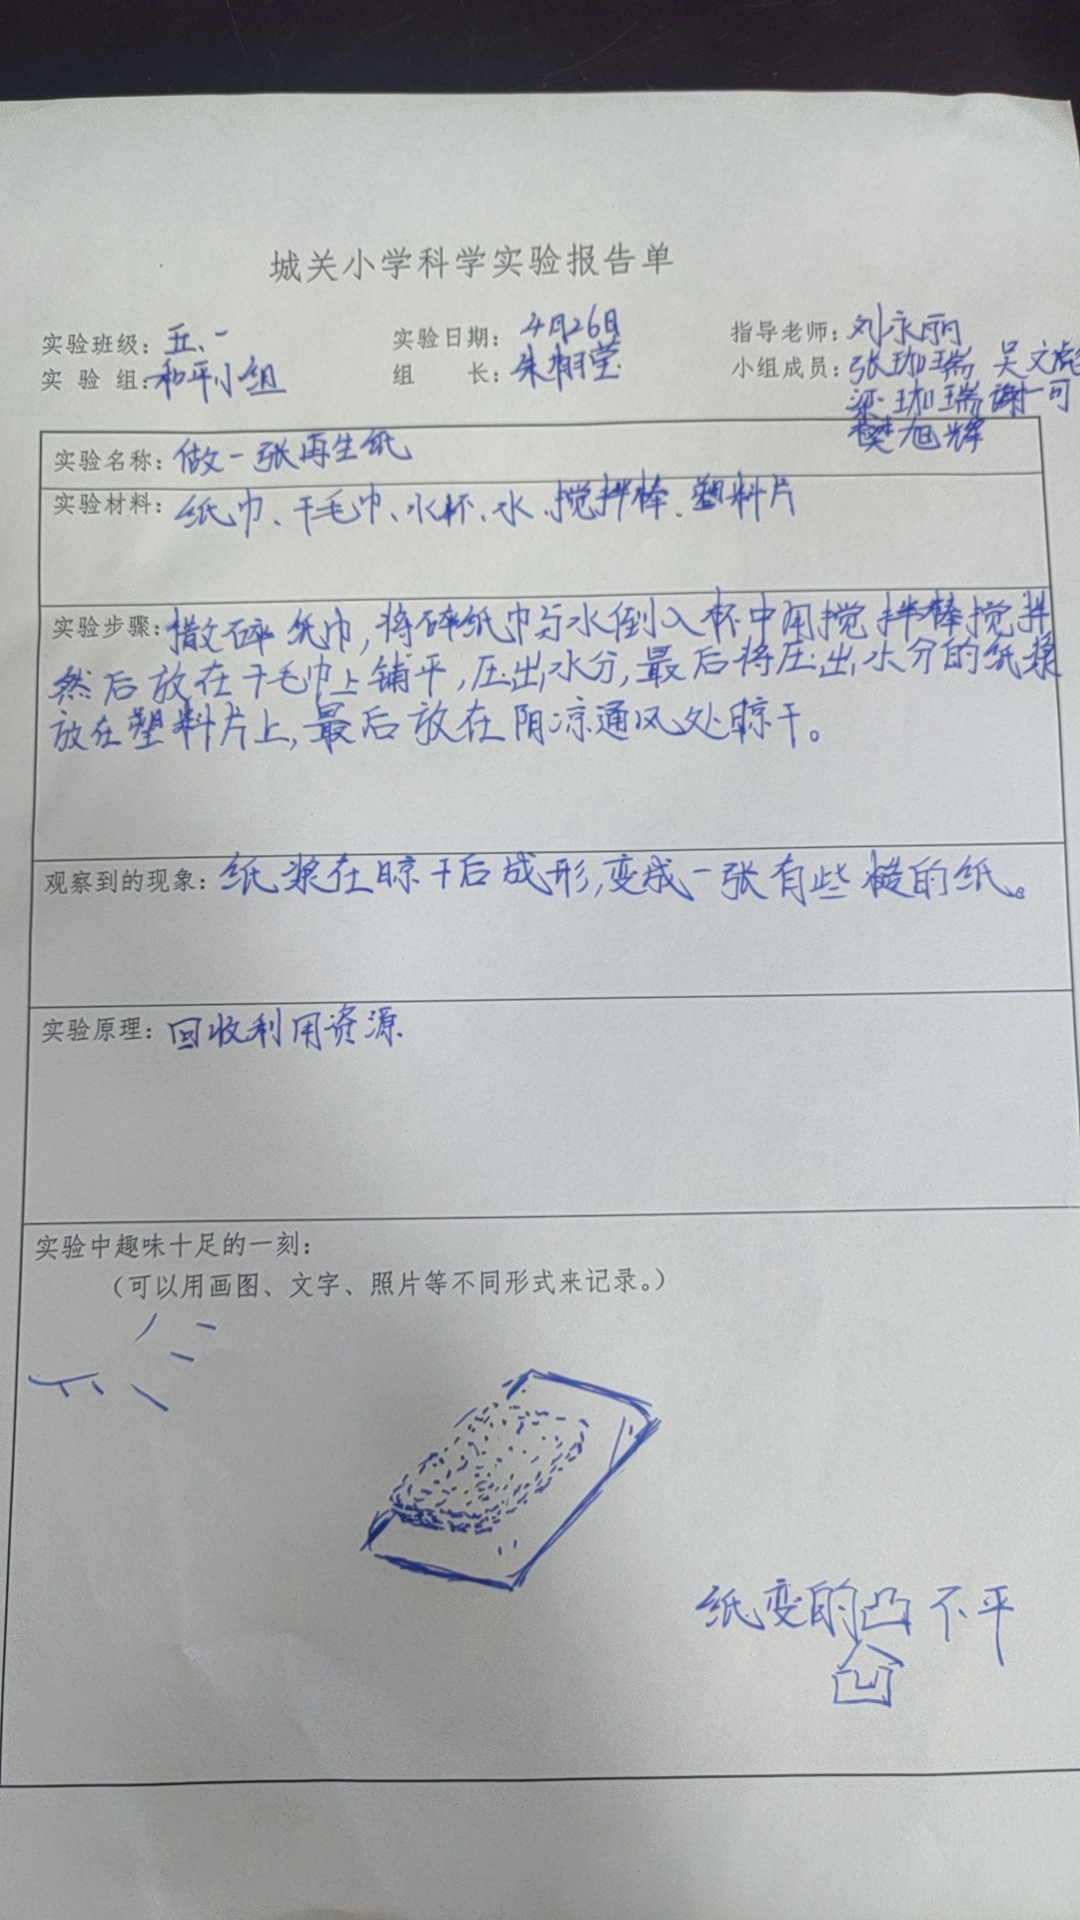 城关小学科学实验报告单
实验班级：五、一 实验日期：4月26日 指导老师：刘永丽
实验组：和平小组 组长：朱栩莹 小组成员：张珈瑞 吴文彪
梁珈瑞 谢一可
樊旭辉
实验名称：做一张再生纸
实验材料：纸巾、干毛巾、水杯、水、搅拌棒、塑料片
实验步骤：撒碎纸巾，将碎纸巾与水倒入杯中用搅拌棒搅拌
然后放在干毛巾上铺平，压出水分，最后将压出水分的纸浆
放在塑料片上，最后放在阴凉通风处晾干。
观察到的现象：纸浆在晾干后成形，变成一张有些糙的纸。
实验原理：回收利用资源
实验中趣味十足的一刻：
（可以用画图、文字、照片等不同形式来记录。）
纸变的凸不平
凹